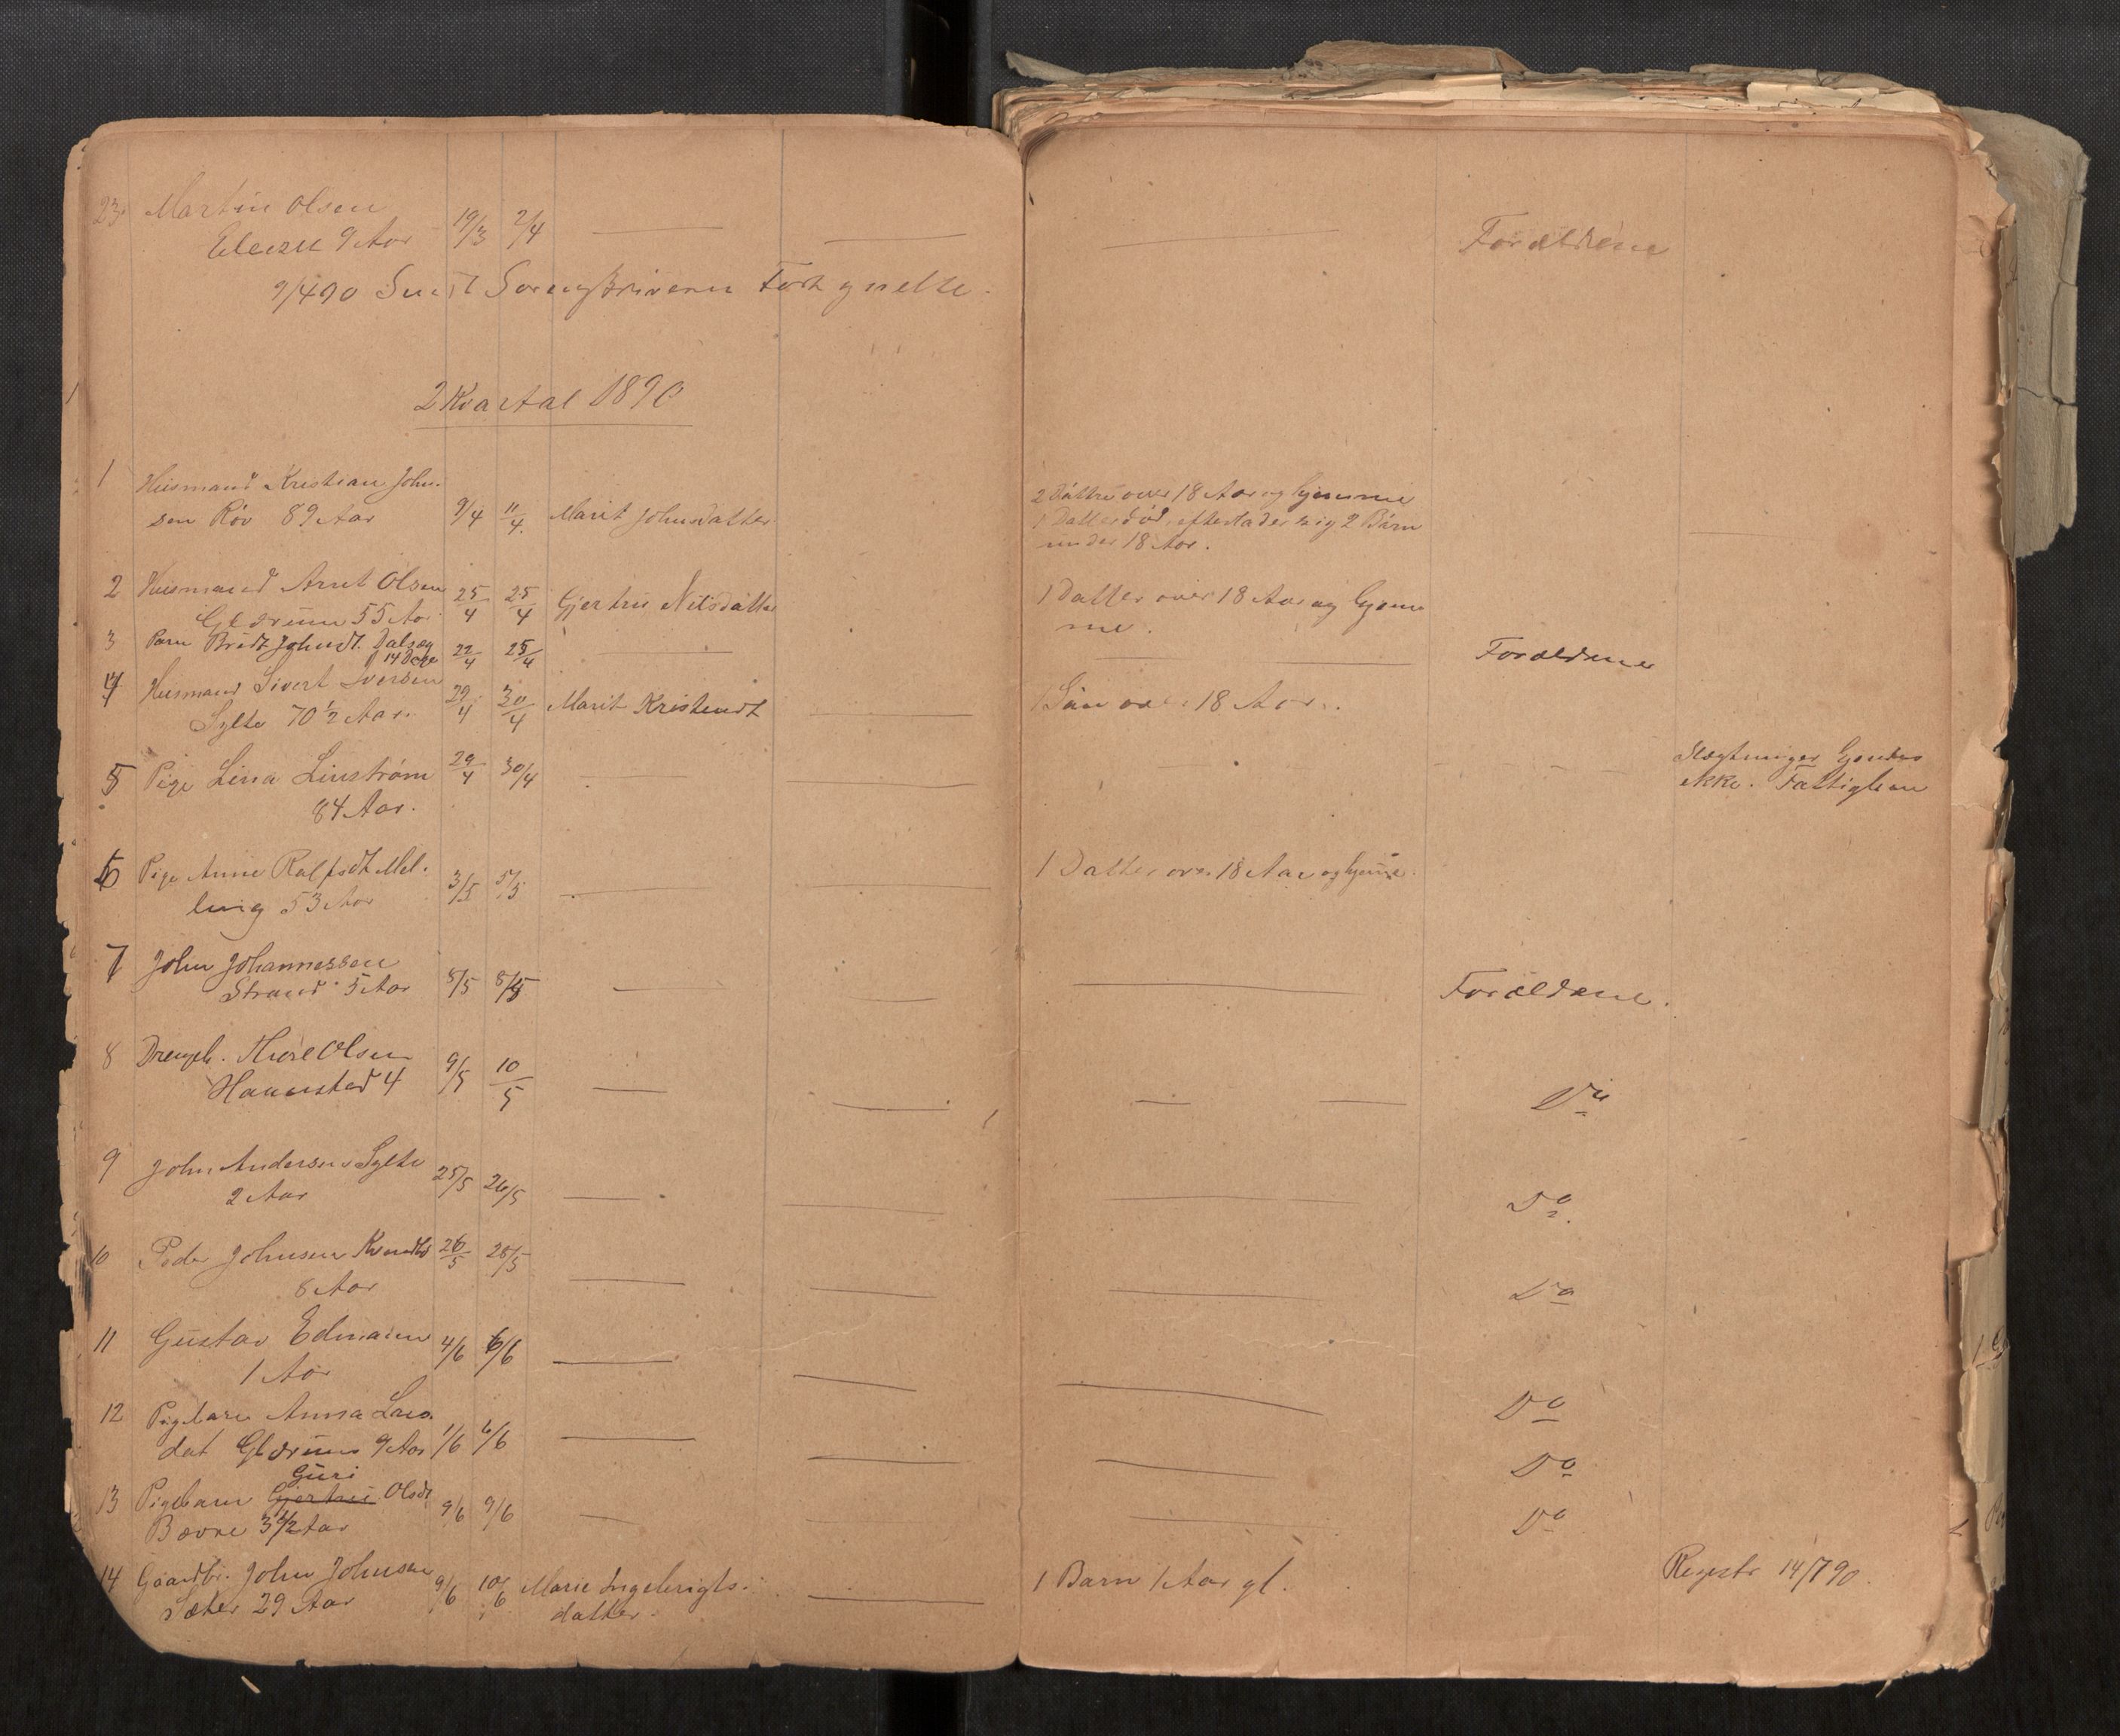 23 Martin Olsen
9 Aar 19/3 2/4 Forældrene
9/4 90 Sendt Sorenskriveren Fortegnelse.
2 Kvartal 1890
1 Husmand Kristian John-
sen Röv 89 Aar 9/4 11/4. Marit Johnsdatter
2 Døttre over 18 Aar og hjemme
1 Datter död, efterlader sig 2 Börn
under 18 Aar.
2 Husmand Arnt Olsen
Glærum 55 Aar 25/4 25/4 Gjertru Nilsdatter
1 Datter over 18 Aar og hjem
me.
3 Barn Johnsdt.
14 Dage 22/4 25/4 Forældrene
4 Husmand Sivert Iversen
Sylte 70 1/2 Aar. 29/4 30/4 Marit Kristensdt
1 Sön over 18 Aar.
5 Pige Lina Linström 29/4 30/4
84 Aar.
Slægtninger Gjendes
ikke. Fattiglem
6 Pige Anne Ralfsdt Mel-
ling 53 Aar 3/5 5/5
1 Datter over 18 Aar og hjeme.
7 John Johannessen
Strand 5 Aar 8/5 8/5 Forældrene.
8 Drengeb. Thore Olsen
Hannestad 4 9/5 10/5 Do
9 John Andersen Sylte
2 Aar 25/5 26/5 Do.
10 Peder Johnsen 26/5 28/5
8 Aar Do
11 Gustav Edmann
1 Aar 4/6 6/6 Do
12 Pigebarn Anna Lars
dat Glærum 9 Aar 1/6 6/6 Do
Guri
13 Pigebarn Gjertru Olsdt
Bævre 3 1/2 Aar 9/6 9/6 Do
14 Gaardbr. John Johnsen
Sæter 29 Aar 9/6 10/6 Marie Ingebrigts-
datter.
1 Barn 1 Aar gl. Registr 14/7 90.